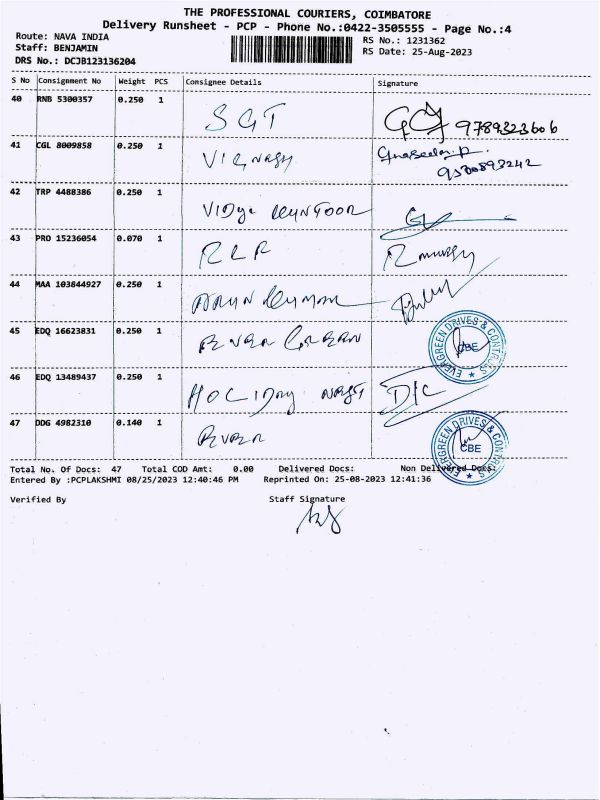 THE PROFESSIONAL COURIERS, COIMBATORE
Delivery Runsheet - PCP - Phone No.:0422-3505555 - Page No.:4
Route: NAVA INDIA
RS No.: 1231362
Staff: BENJAMIN
RS Date: 25-Aug-2023
DRS No.: DCJB123136204
S No Consignment No Weight PCS Consignee Details Signature
40 RNB 5300357 0.250 1 SGT 9789323606
41 CGL 8009858 0.250 1
9500893242
42 TRP 4488386 0.250 1
43 PRO 15236054 0.070 1
44 MAA 103844927 0.250 1
45 EDQ 16623831 0.250 1
EVERGREEN DRIVES & CONTROLS
CBE
46 EDQ 13489437 0.250 1 D/C
47 DDG 4982310 0.140 1
EVERGREEN DRIVES & CONTROLS
CBE
Total No. Of Docs: 47 Total COD Amt: 0.00 Delivered Docs: Non Delivered Docs:
Entered By :PCPLAKSHMI 08/25/2023 12:40:46 PM Reprinted On: 25-08-2023 12:41:36
Verified By Staff Signature